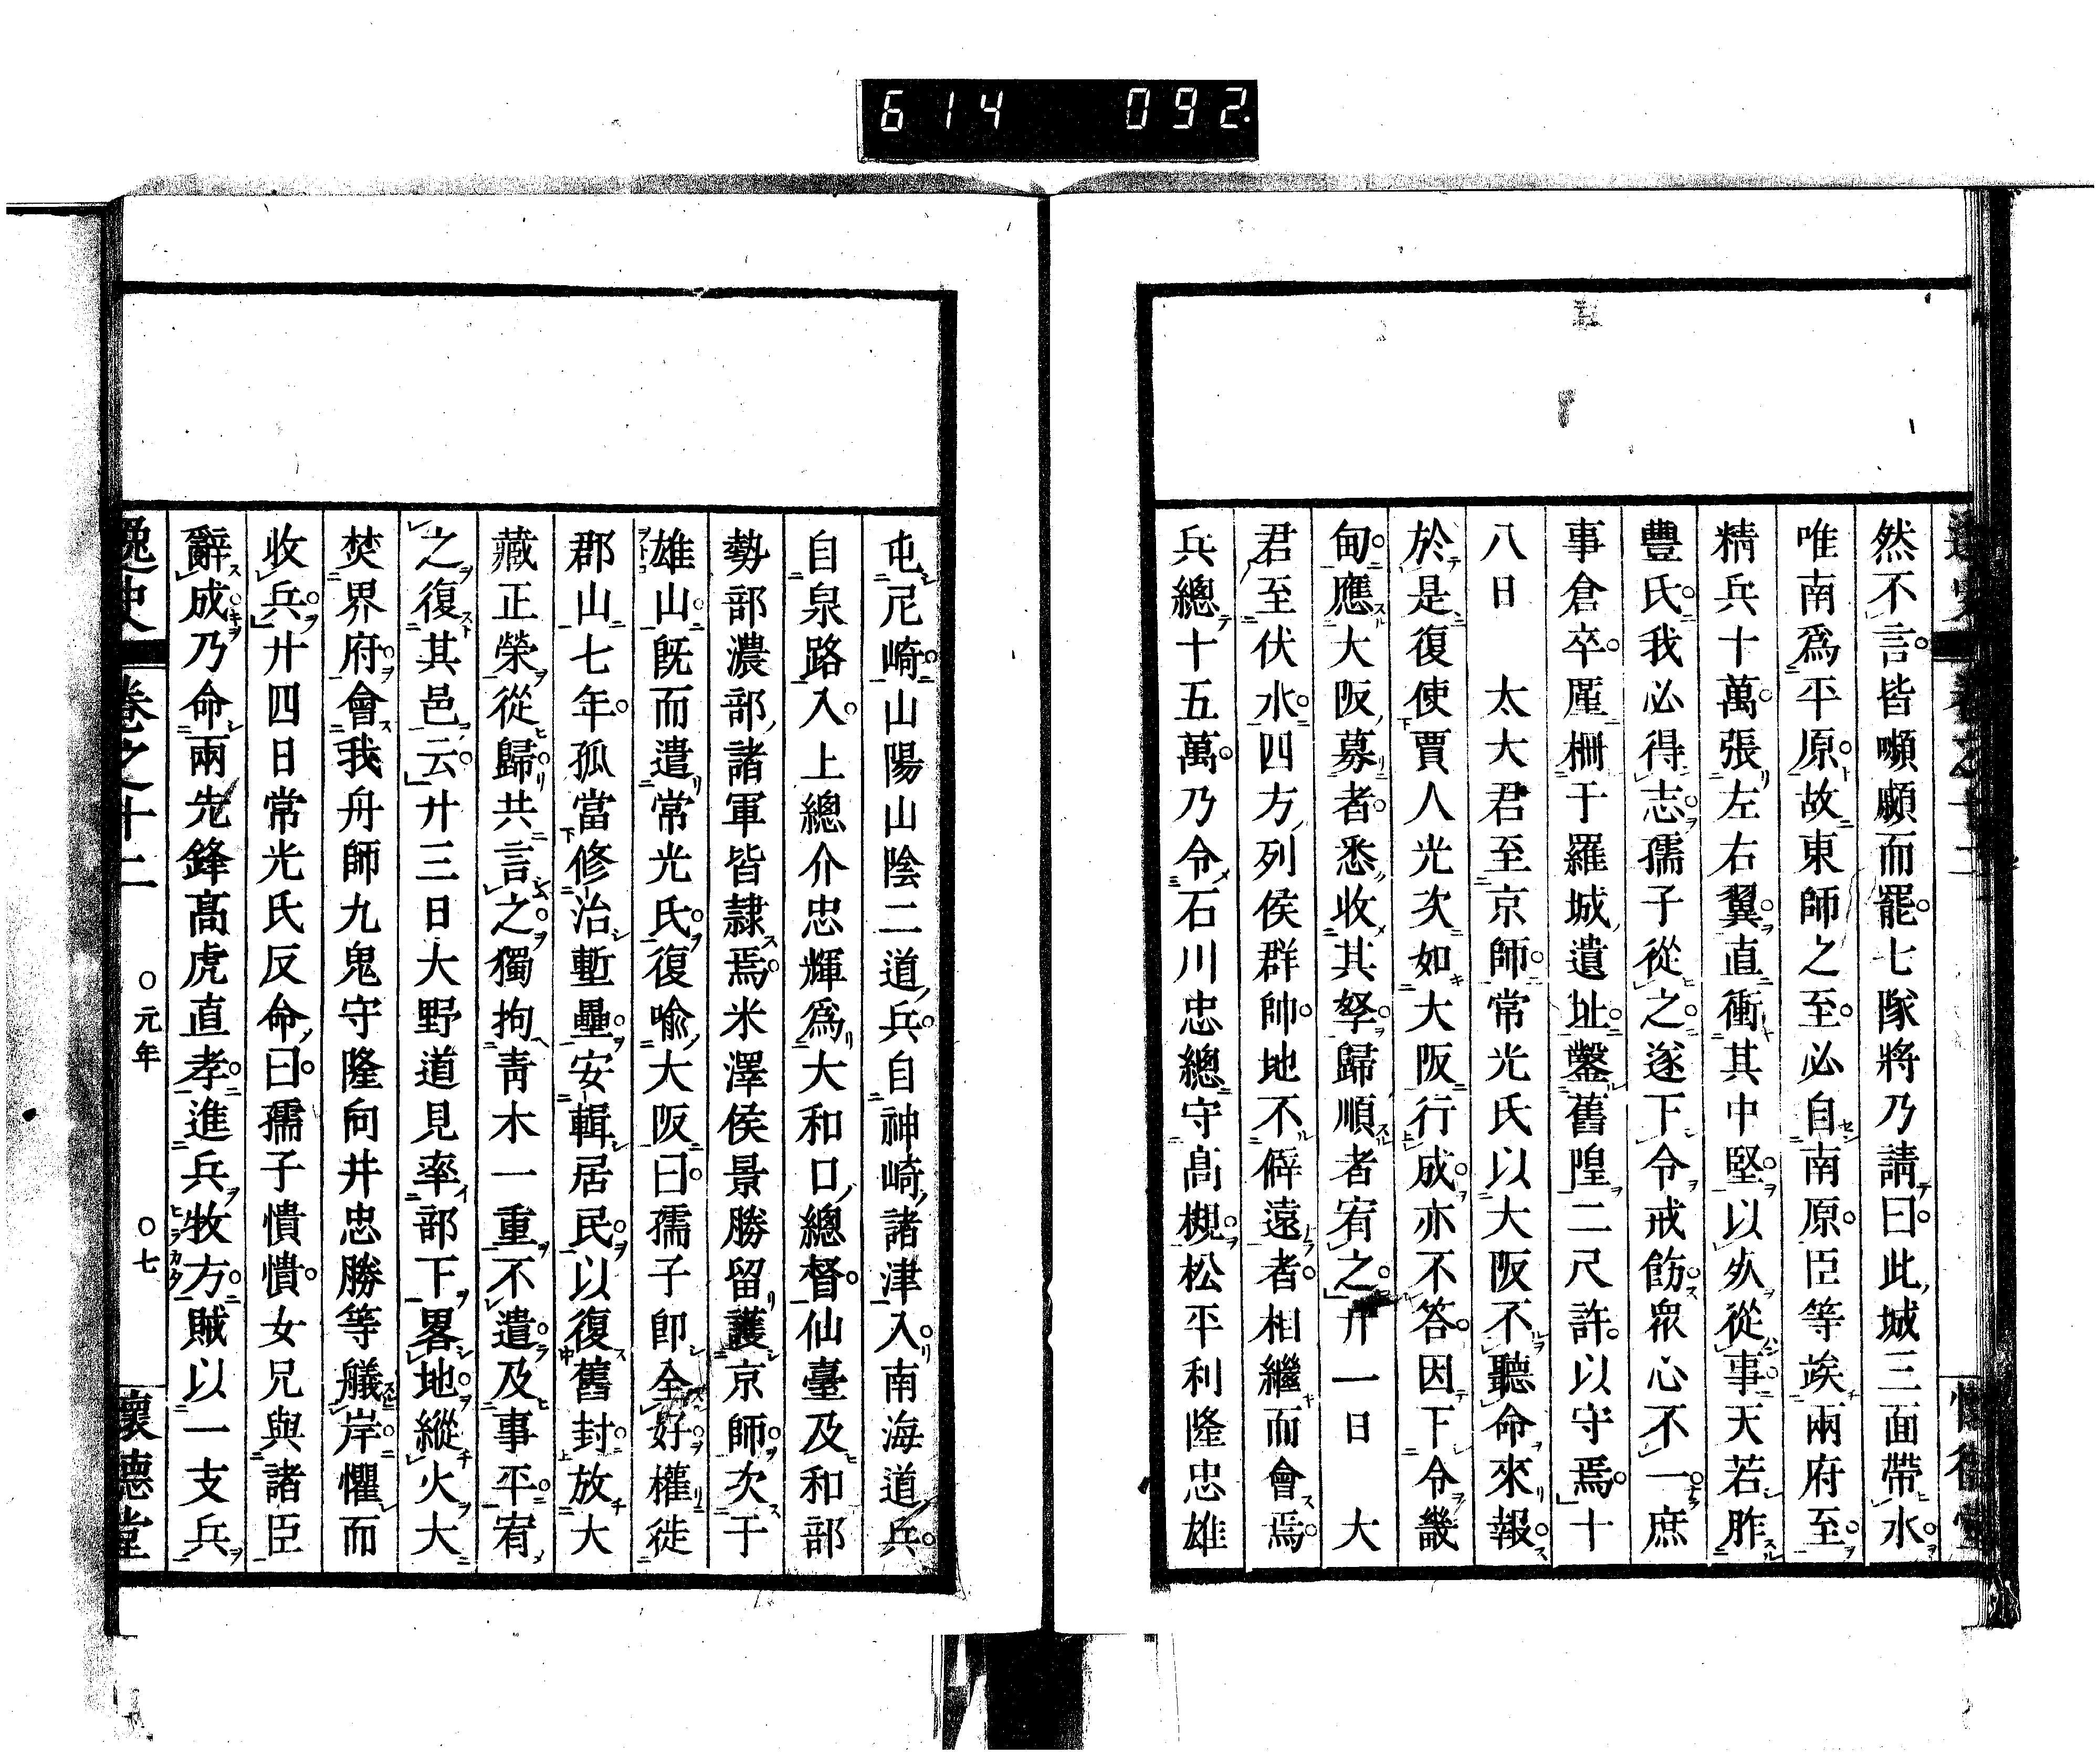 614 092.
然不言皆嚬顣而罷七隊將乃請曰此城三面帶水
唯南爲平原故東師之至必自南原臣等竢兩府至
精兵十萬張左右翼直衝其中堅以从從事天若胙
豐氏我必得志孺子從之遂下令戒飭衆心不一庶
事倉卒厪柵于羅城遺址鑿舊隍二尺許以守焉十
八日 太大君至京師常光氏以大阪不聽命來報
於是復使賈人光次如大阪行成亦不答因下令畿
甸應大阪募者悉收其孥歸順者宥之廾一日 大
君至伏水四方列侯群帥地不僻遠者相繼而會焉
兵總十五萬乃令石川忠總守髙槻松平利隆忠雄
屯尼崎山陽山陰二道兵自神崎諸津入南海道兵
自泉路入上總介忠輝爲大和口總督仙臺及和部
勢部濃部諸軍皆隷焉米澤侯景勝留護京師次于
雄山既而遣常光氏復喩大阪曰孺子卽全好權徙
郡山七年孤當修治塹壘安輯居民以復舊封放大
藏正榮從歸共言之獨拘靑木一重不遣及事平宥
之復其邑云廾三日大野道見率部下畧地縱火大
焚界府會我舟師九鬼守隆向井忠勝等艤岸懼而
收兵廾四日常光氏反命曰孺子憒憒女兄與諸臣
辭成乃命兩先鋒髙虎直孝進兵牧方賊以一支兵
逸史 卷之十二 ○元年 ○七 懷德堂